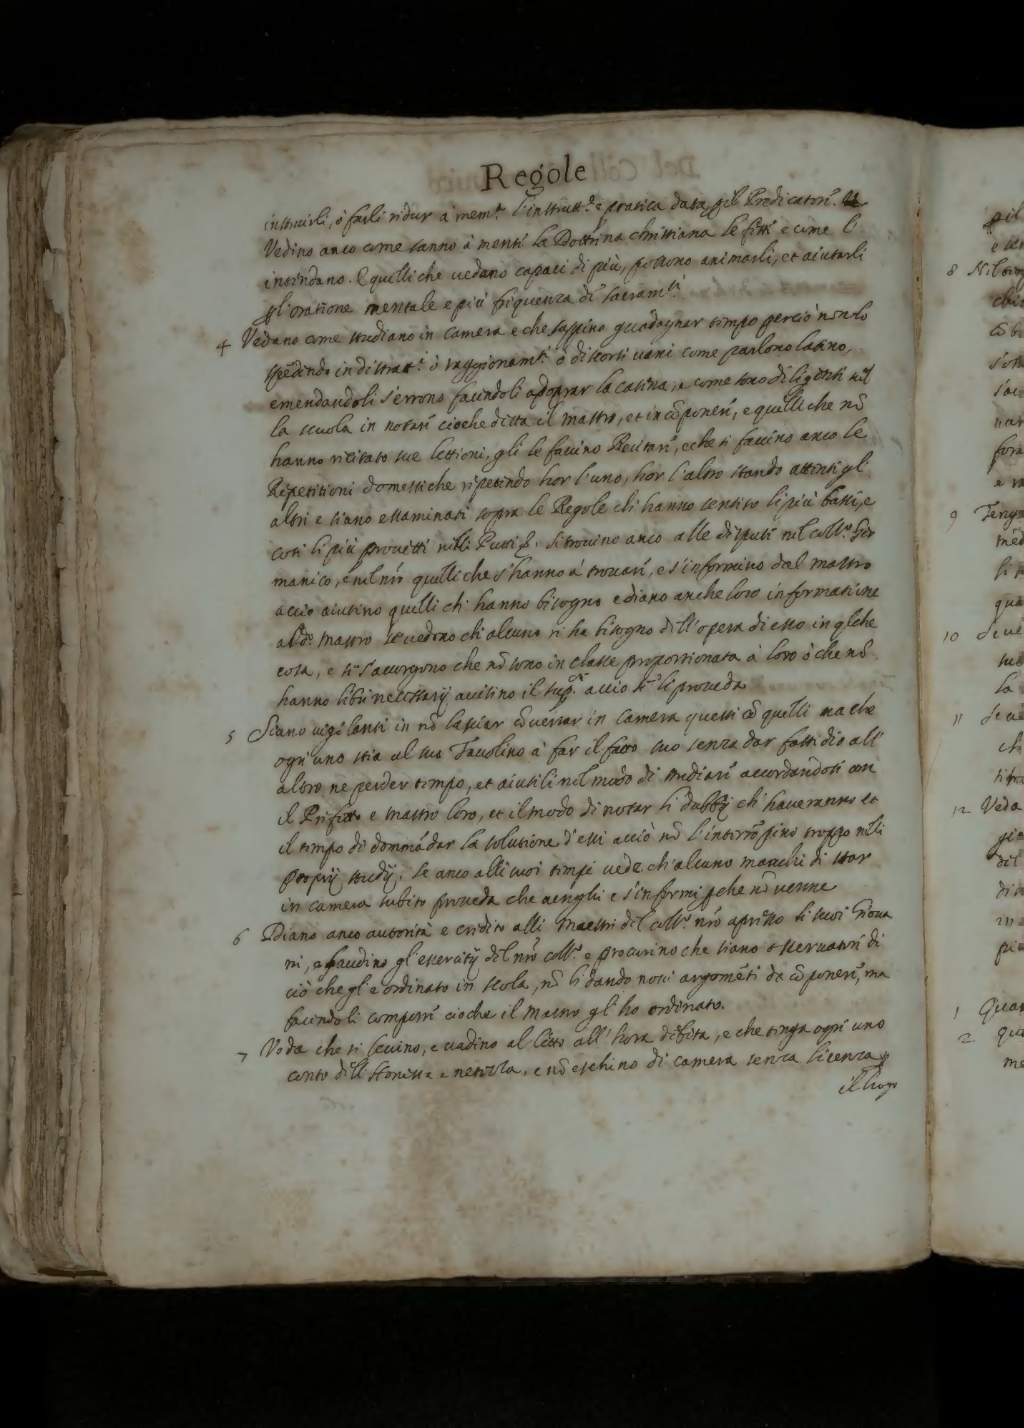 Regole
instruirli, ò farli ridur à mem.ª l'instrutt.e e pratica data p li Predicatori.
Vedino anco come sanno à menti la Dottrina christiana le feste e come l'
intendano. E quelli che vedano capaci di più, possono animarli, et aiutarli
p l'oratione mentale e più frequenza di sacram.ti
4 Vedano come studiano in camera e che sappino guadagnar tempo perciò non lo
spedendo in distratt.i ò raggionam.ti ò discorsi vani come parlono latino,
emendandoli s'errono facindoli adoprar la latina, e come sono diligenti nel
la scuola in notari cioche ditta il mastro, et in cõponeri, e quelli che nõ
hanno ricitato sue lettioni, gli le facino Recitari, e che si faccino anco le
Ripetitioni domestiche ripetindo hor l'uno, hor l'altro stando attenti gl'
altri e siano essaminati sopra le Regole chi hanno sentito li più bassi, e
cosi li più provetti nilli. si trovino anco alle disputi nel coll.º Ger
manico, è nel nrõ quelli che s'hanno à trovari, e s'informino dal mastro
accio aiutino quelli chi hanno bisogno e diano anche loro informatione
al d.º mastro se vedono chi alcuno ri ha bisogno dill'opera di esso in qlche
cosa, e si s'accorgono che nõ sono in classe proportionata à loro ò che nõ
hanno libri necessarij avisino il sup.re accio si li proveda
5 Siano vigilanti in nõ lasciar cõversar in camera questi cõ quelli ma che
ogni uno stia al suo Tavolino à far il fatto suo senza dar fastidio all'
altro ne perder tempo, et aiutili nel modo di studiari accordandosi con
il Prifetto e mastro loro, et il modo di notar li dubbij chi haveranno et
il tempo di dommãdar la solutione d'essi acciò nõ l'interrõpino troppo nelli
proprij studij. se anco alli suoi tempi vede ch'alcuno manchi di star
in camera subito proveda che venghi e s'informi pche nõ venne
6 Diano anco autorità e credito alli Maestri del coll.º nrõ apresso li suoi Giova
ni, e laudino gl'essercitij del nrõ coll.º e procurino che siano osservatori di
ciò che gl'e ordinato in scola, nõ li dando novi argomẽti da cõponeri, ma
facindoli comporri cioche il mastro gl'ha ordinato.
7 Veda che si levino, e vadino al letto all'hora debita, e che tinga ogni uno
conto dill'honistà e nettezza, e nõ eschino di camera senza licenza p
il luogo
8
9 Tenga
10 Se ve
11 Se ve
12 Veda
1 Quan
2